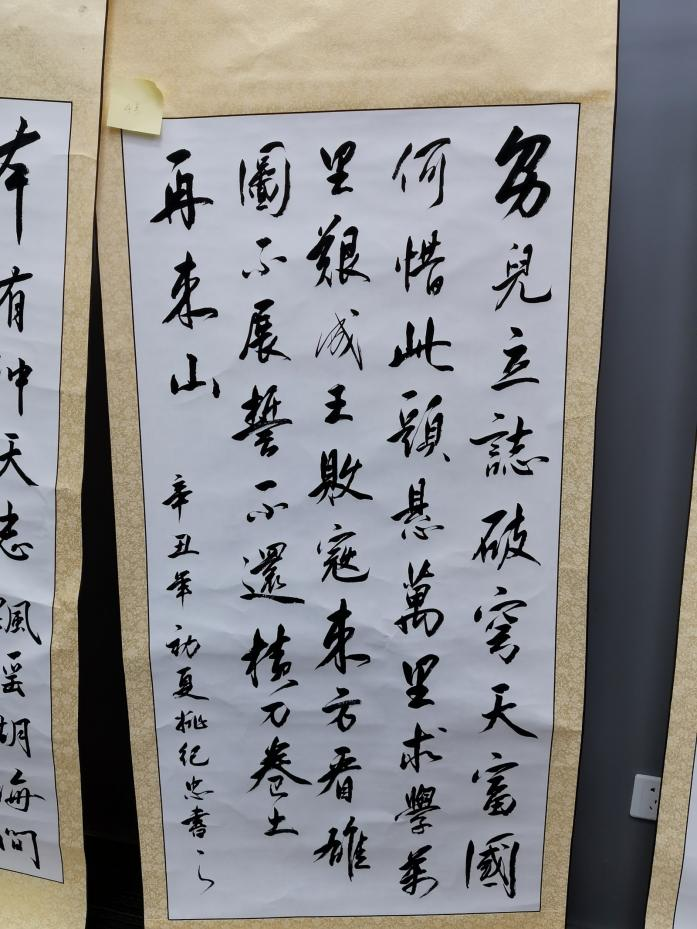 男兒立誌破穹天富國
何惜此頭懸萬里求學萬
里艱成王敗寇東方看雄
圖不展誓不還橫刀卷土
再來山
辛丑年初夏紀忠書
本有沖天志飄搖湖海間